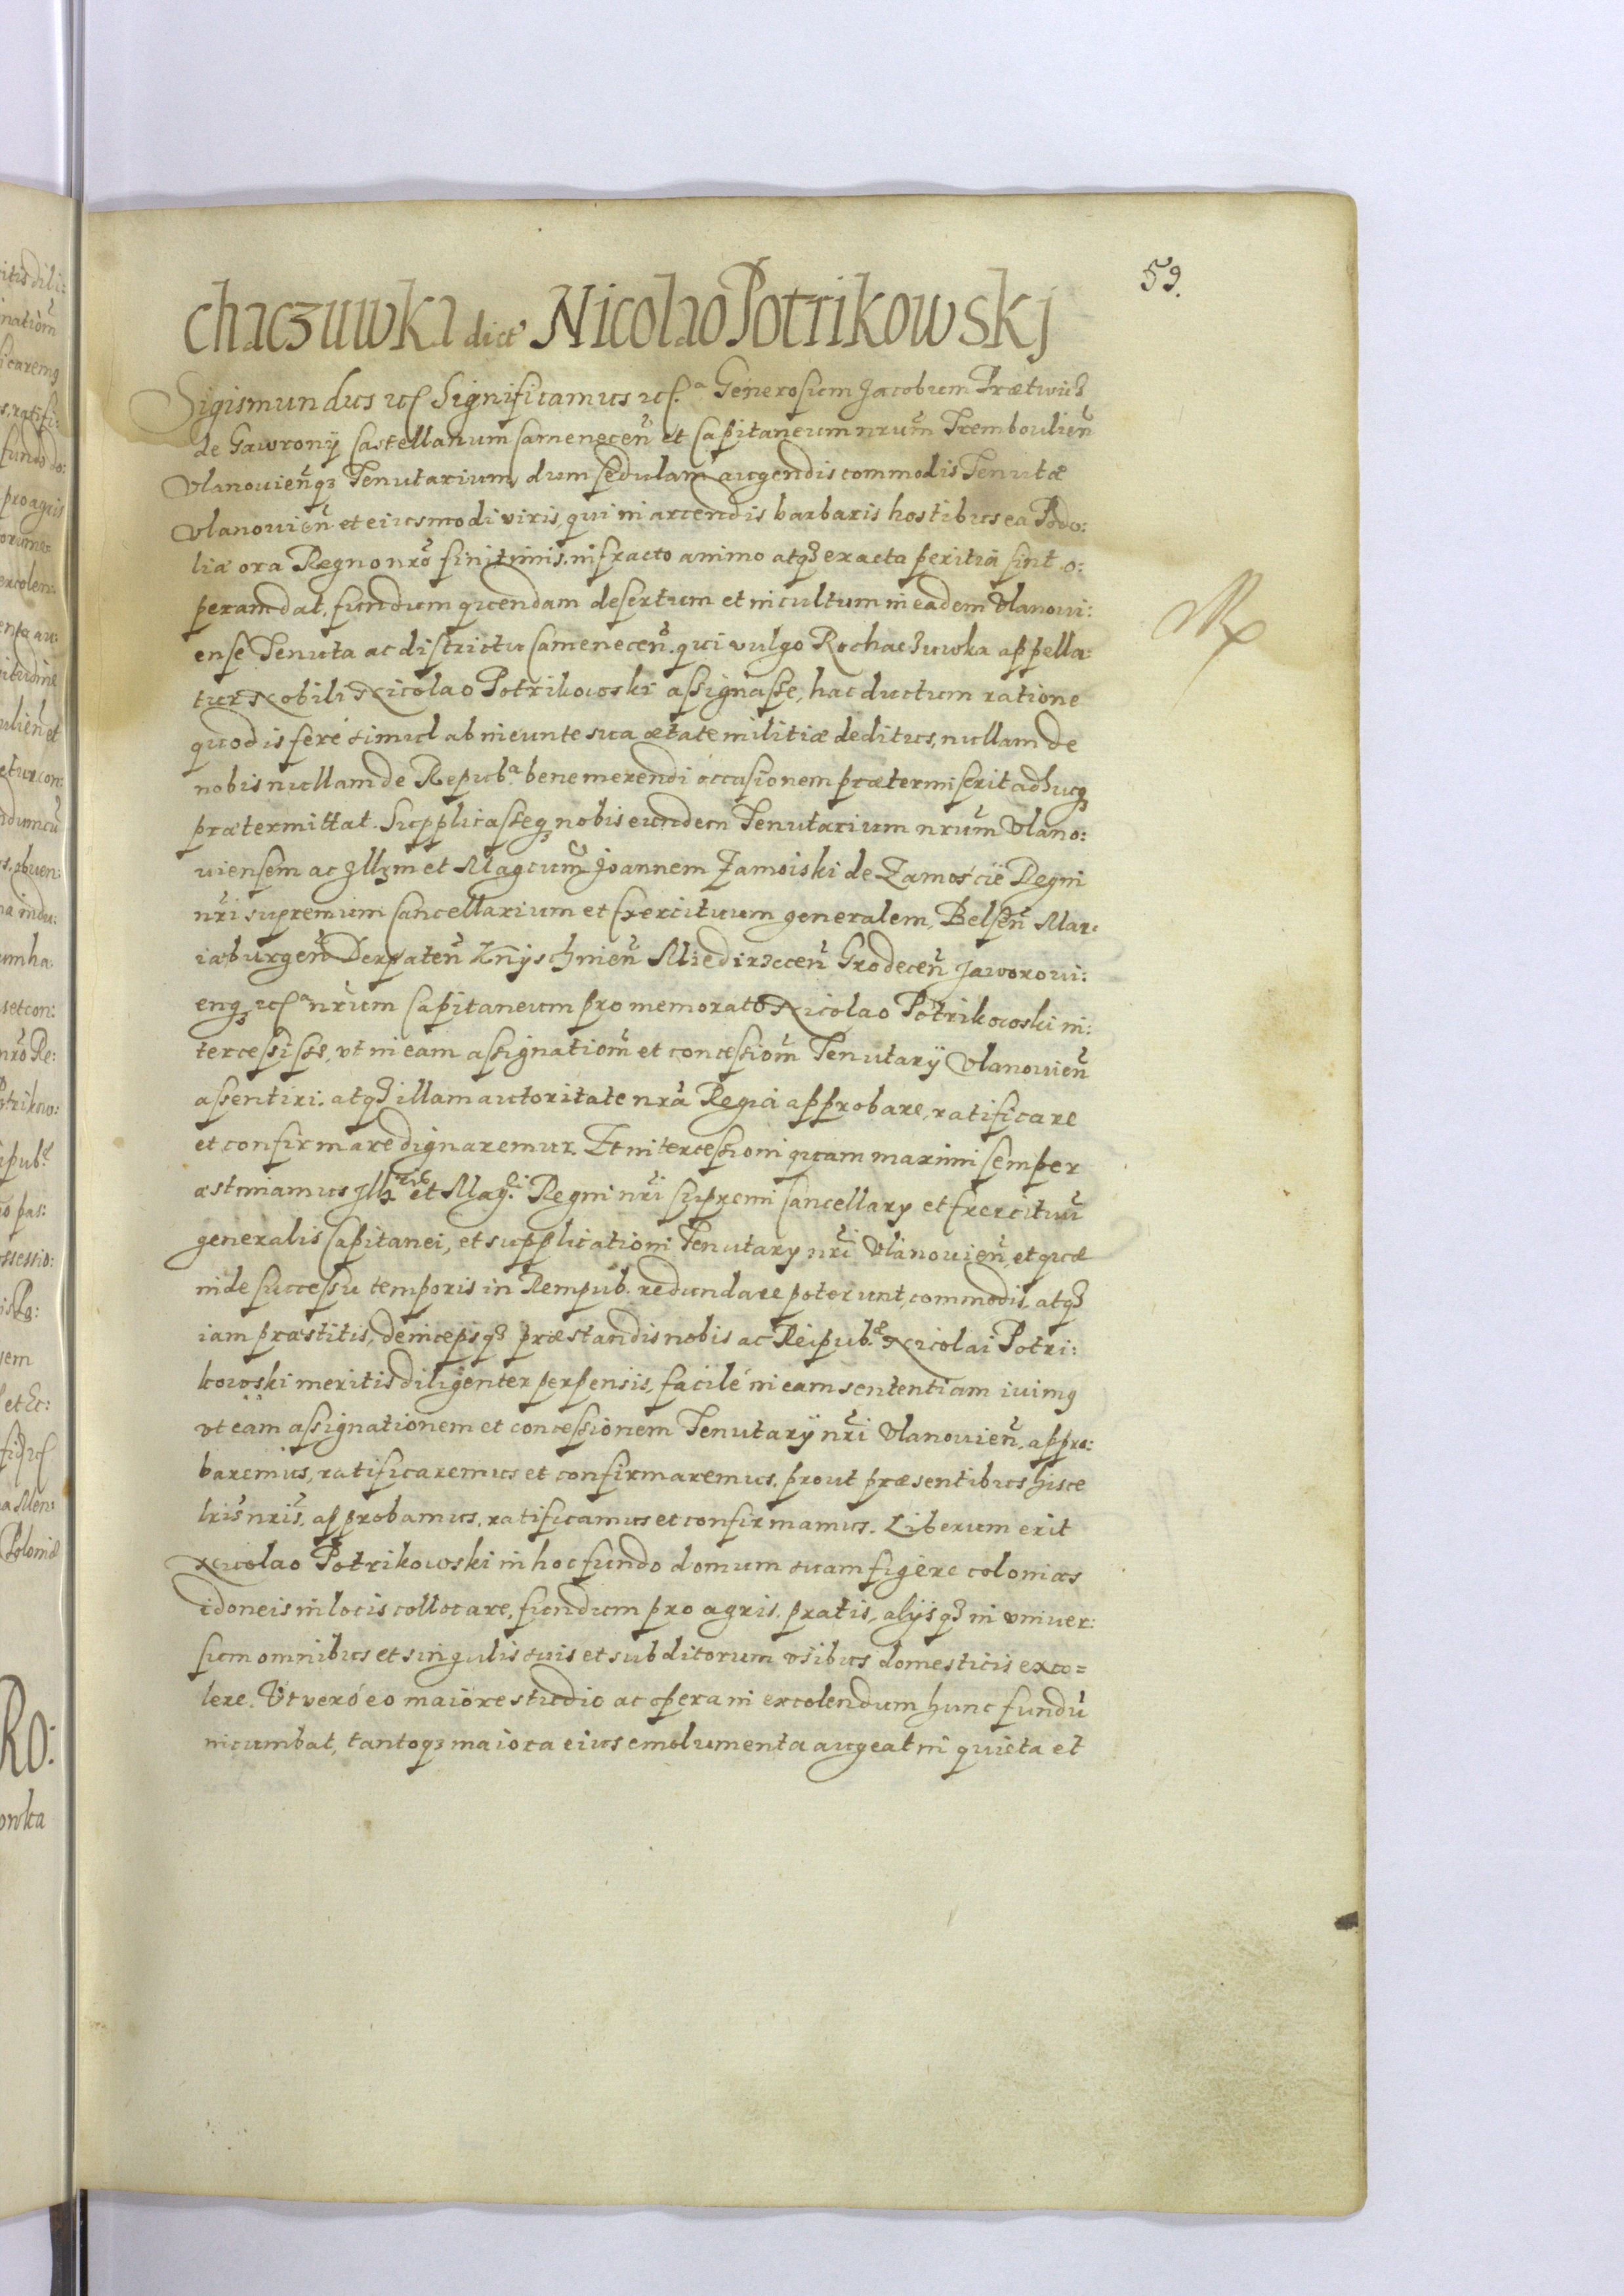 59.
chaczuwka dict Nicolao Potrikowskj
Sigismundus etc Significamus etc.a Generosum Jacobum Prætwicz
de Gawrony Castellanum Camenecen̄ et Capitaneum nrum̄ Trembowlien̄
Vlanouien̄qз Tenutarium, dum sedulam augendis commodis Tenutæ
Vlanouien̄ et eiusmodi viris, qui in arcendis barbaris hostibus ea Podo:
liæ ora Regno nrō finitimis, infracto animo atqз exacta peritia sint o:
peram dat, fundum quendam desertum et incultum in eadem Vlanoui:
ense Tenuta ac districtu Camenecen̄. qui vulgo Rochaczuwka appella:
tur Nobili Nicolao Potrikowski assignasse, hac ductum ratione
quod is feré simul ab ineunte sua ætate militiæ deditus, nullam de
nobis nullam de Repub.a bene merendi occasionem prætermiserit adhucqз
prætermittat. Supplicasseqз nobis eundem Tenutarium nrum̄ Vlano:
uiensem ac Illзm et Magcum̄ Joannem Zamoiski de Zamoście Regni
nrī supremum Cancellarium et Exercituum generalem, Belsen̄ Mar:
iæburgen̄ Derpaten̄ Knyschinen̄ Miedirzecen̄ Grodecen̄ Jaworoui:
enqз etc.a nrum Capitaneum pro memorato Nicolao Potrikowski in:
tercessisse, vt in eam assignationē et concessionē Tenutarÿ Vlanouien̄
assentiri. atqз illam autoritate nrā Regia approbare, ratificare
et confirmare dignaremur. Et intercessioni quam maximi semper
æstimamus Illз et Mag.ci Regni nrī Supremi Cancellarÿ et Exercituū
generalis Capitanei, et supplicationi Tenutarÿ nrī Vlanouien̄, et quæ
inde successu temporis in Rempub. redundare poterunt, commodis, atqз
iam præstitis, deincepsqз præstandis nobis ac Reipub.æ Nicolai Potri:
kowski meritis diligenter perpensis, facilé in eam sententiam iuimq
vt eam assignationem et concessionem Tenutarÿ nrī Vlanouien̄. appro:
baremus, ratificaremus et confirmaremus. prout præsentibus hisce
lrīs nrīs, approbamus, ratificamus et confirmamus. Liberum erit
Nicolao Potrikowski in hoc fundo domum suam figere colonias
idoneis in locis collocare, fundum pro agris, pratis, alÿsqз in vniuer:
sum omnibus et singulis suis et subditorum vsibus domesticis exco=
lere. Vt veró eo maiore studio ac opera in excolendum hunc fundū
incumbat, tantoqз maiora eius emolumenta augeat in quieta et